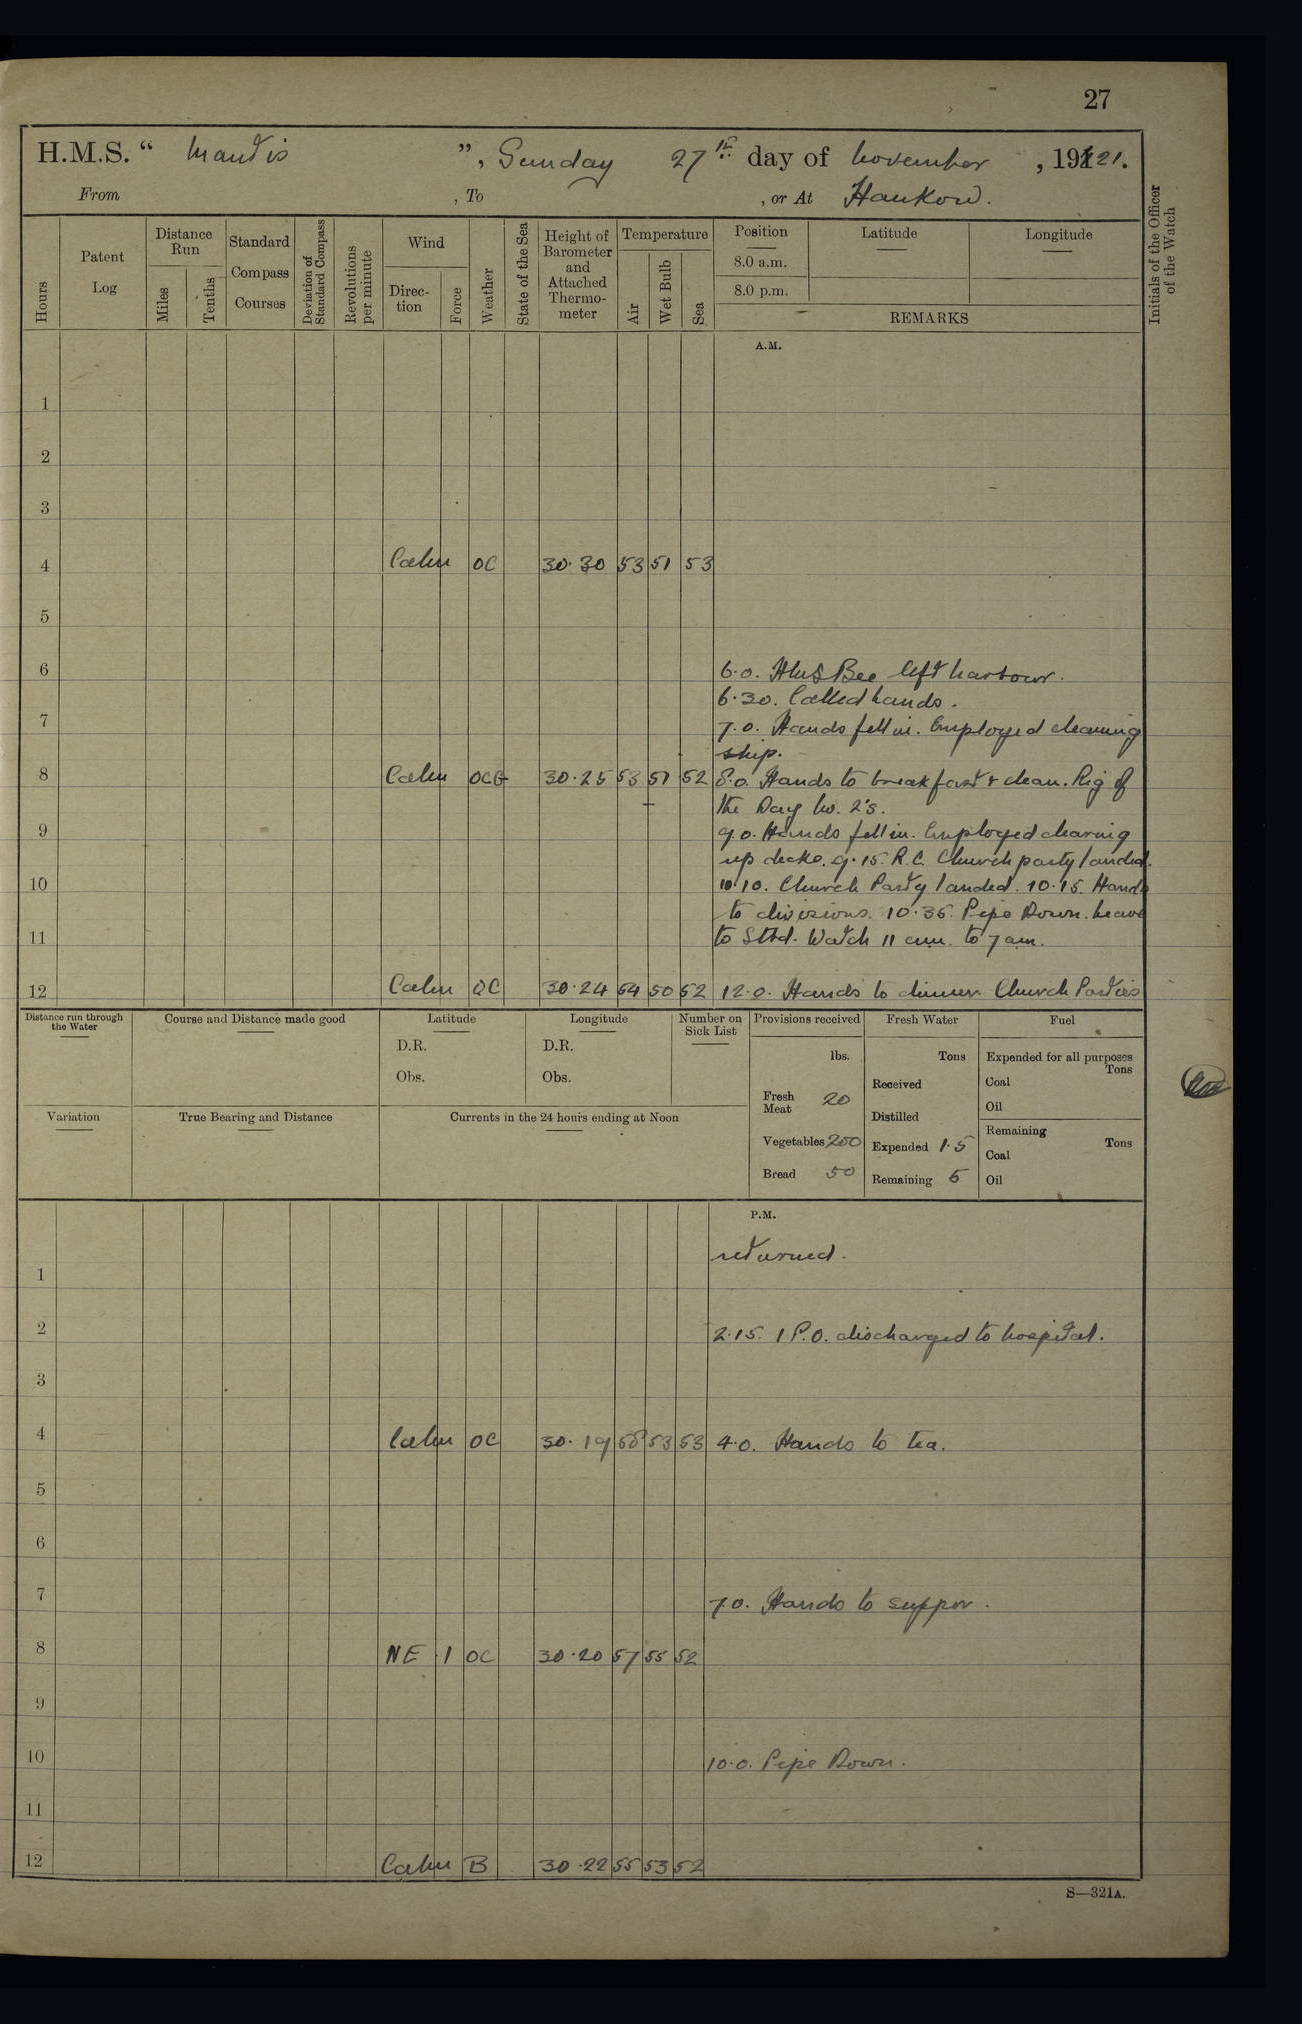 27
H.M.S. “ Mantis ”, Sunday 27th day of November , 1921.
From , To , or At Hankow.
Hours
Patent Log
Distance Run
Miles
Tenths
Standard Compass Courses
Deviation of Standard Compass
Revolutions per minute
Wind
Direction
Force
Weather
State of the Sea
Height of Barometer and Attached Thermometer
Temperature
Air
Wet Bulb
Sea
Position
8.0 a.m.
8.0 p.m.
Latitude
Longitude
REMARKS
Initials of the Officer of the Watch
A.M.
1
2
3
4 Calm OC 30·30 53 51 53
5
6 6.0. HMS Bee left harbour.
6.30. Called hands.
7 7.0. Hands fell in. Employed cleaning
ship.
8 Calm OCG 30·25 53 51 52 8.0. Hands to breakfast & clean. Rig of
the Day No. 2's.
9 9.0. Hands fell in. Employed clearing
up decks. 9.15. R.C. Church party landed.
10 10.10. Church Party landed. 10.15. Hands
to divisions. 10.35. Pipe Down. Leave
11 to Stbd. Watch 11 am. to 7 am.
12 Calm OC 30·24 54 50 52 12.0. Hands to dinner Church Parties
Distance run through the Water
Course and Distance made good
Latitude
D.R.
Obs.
Longitude
D.R.
Obs.
Number on Sick List
Provisions received
lbs.
Fresh Meat 20
Vegetables 200
Bread 50
Fresh Water
Tons
Received
Distilled
Expended 1.5
Remaining 5
Fuel
Expended for all purposes
Tons
Coal
Oil
Remaining
Tons
Coal
Oil
Variation
True Bearing and Distance
Currents in the 24 hours ending at Noon
P.M.
returned.
1
2 2.15. 1 P.O. discharged to hospital.
3
4 Calm OC 30·19 58 53 53 4.0. Hands to tea.
5
6
7 7.0. Hands to supper.
8 NE 1 OC 30·20 57 55 52
9
10 10.0. Pipe Down.
11
12 Calm B 30·22 55 53 52
S—321A.